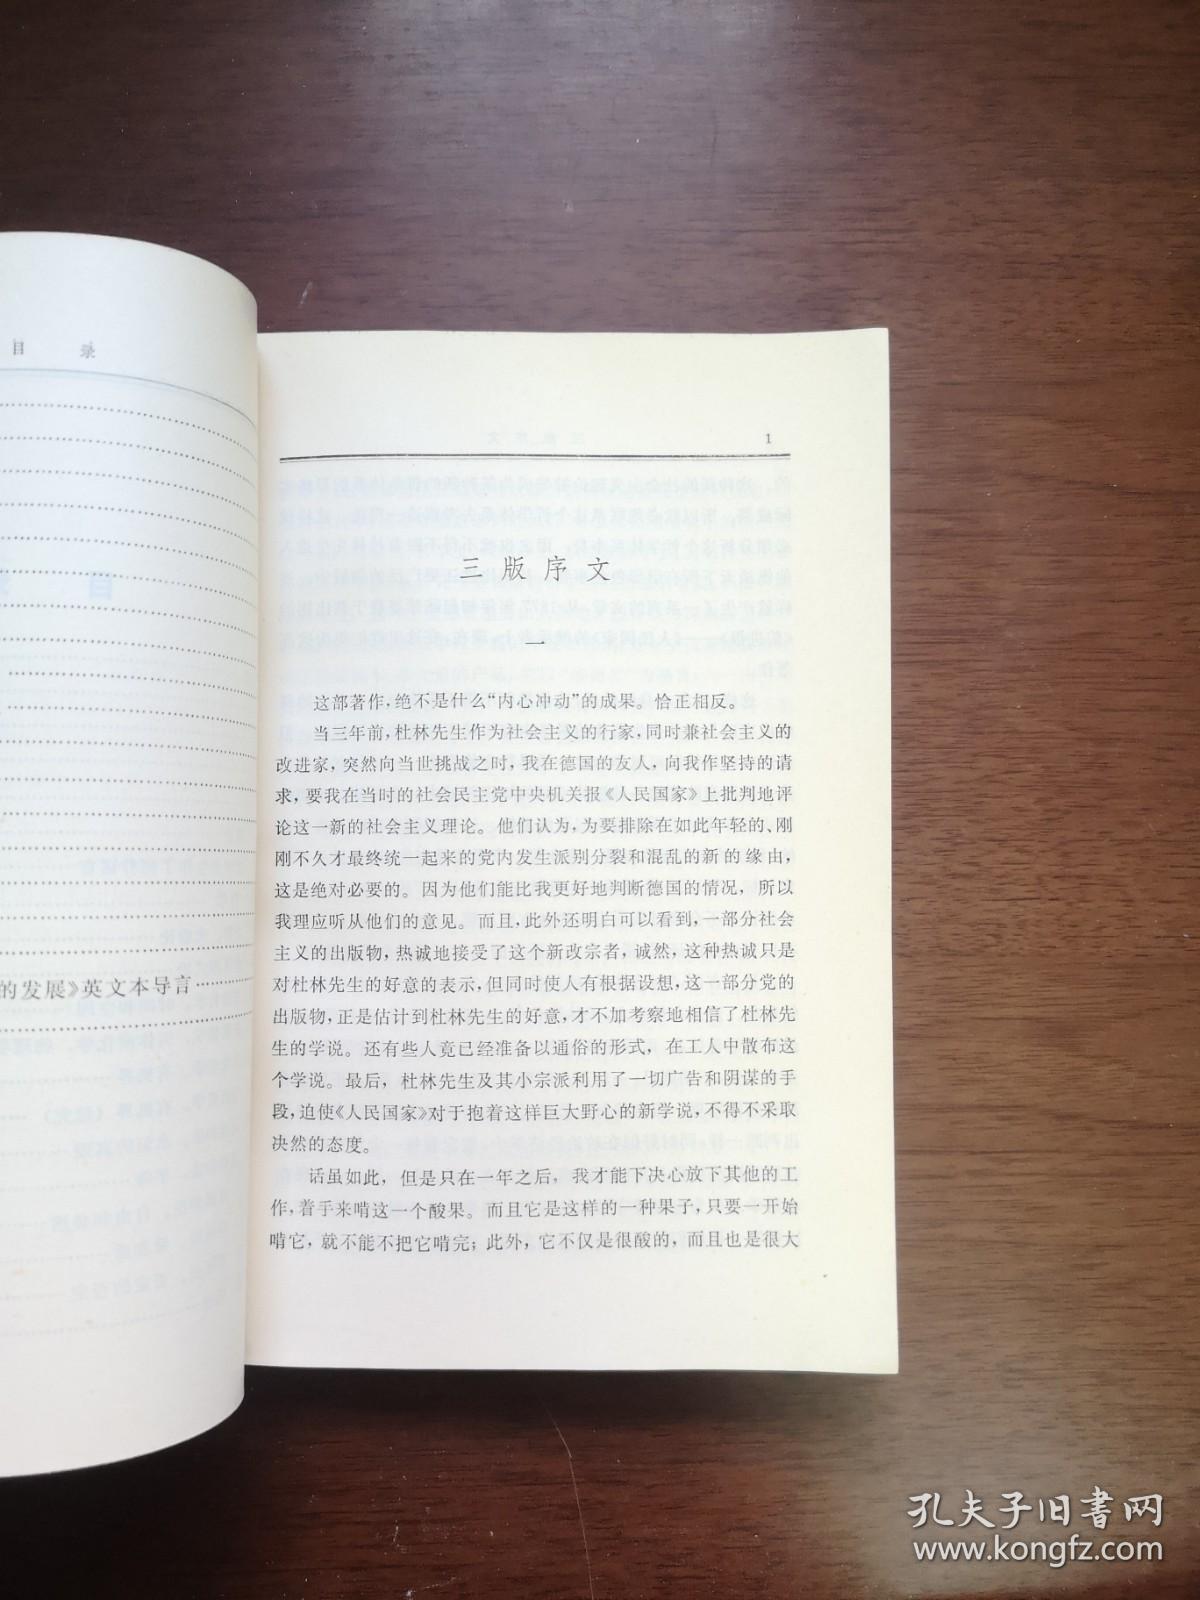 目 录
的发展》英文本导言
1
三版序文
一
这部著作，绝不是什么“内心冲动”的成果。恰正相反。
当三年前，杜林先生作为社会主义的行家，同时兼社会主义的
改进家，突然向当世挑战之时，我在德国的友人，向我作坚持的请
求，要我在当时的社会民主党中央机关报《人民国家》上批判地评
论这一新的社会主义理论。他们认为，为要排除在如此年轻的、刚
刚不久才最终统一起来的党内发生派别分裂和混乱的新的缘由，
这是绝对必要的。因为他们能比我更好地判断德国的情况，所以
我理应听从他们的意见。而且，此外还明白可以看到，一部分社会
主义的出版物，热诚地接受了这个新改宗者，诚然，这种热诚只是
对杜林先生的好意的表示，但同时使人有根据设想，这一部分党的
出版物，正是估计到杜林先生的好意，才不加考察地相信了杜林先
生的学说。还有些人竟已经准备以通俗的形式，在工人中散布这
个学说。最后，杜林先生及其小宗派利用了一切广告和阴谋的手
段，迫使《人民国家》对于抱着这样巨大野心的新学说，不得不采取
决然的态度。
话虽如此，但是只在一年之后，我才能下决心放下其他的工
作，着手来啃这一个酸果。而且它是这样的一种果子，只要一开始
啃它，就不能不把它啃完；此外，它不仅是很酸的，而且也是很大
孔夫子旧书网
www.kongfz.com